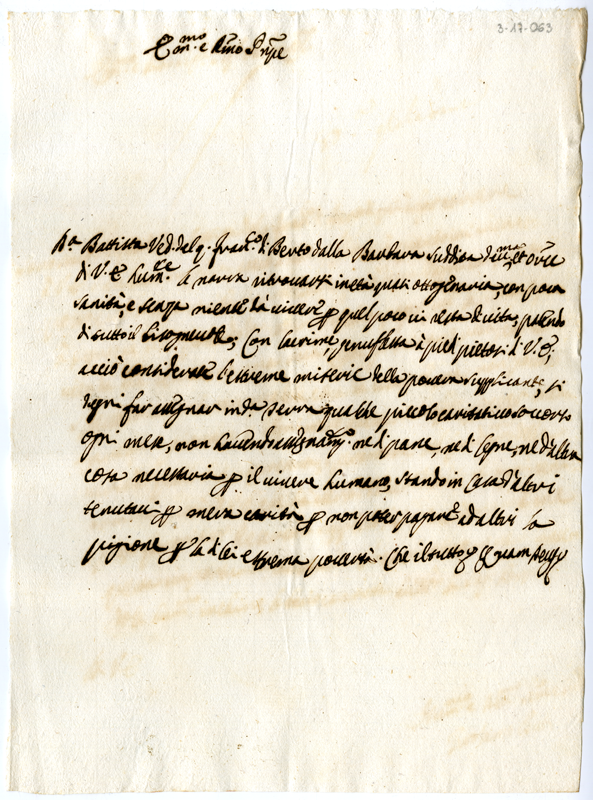 3-17-063
Ecc.mo e R.mo Pn̄pe
D.a Battista Ved. del q. Fran.co di Berto dalla Barbara suddita dev.ma et orče
di V. E. hum.te le narra ritrovarsi in età quasi ottogenaria, con poca
sanità, e senza niente da vivere p quel poco in resta di vita, patendo
di tutto il bisognevole; Con lacrime genuflessa a piedi pietosi di V. E.,
acciò considerate l'estreme miserie della povera supplicante, si
degni far assegnar in d.a Terra qualche piccolo caritativo soccorso
ogni mese, non havendo assegnam.to ne di pane, ne di legne, ne d'altra
cosa necessaria p il vivere humano, stando in Casa d'altri
tenutaci p mera carità p non poter pagare ad altri la
pigione p la di lei estrema povertà. Che il tutto & Quam Deus &